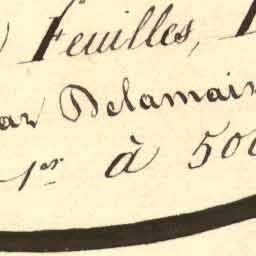 Feuilles,
par Delamain
1er à 500